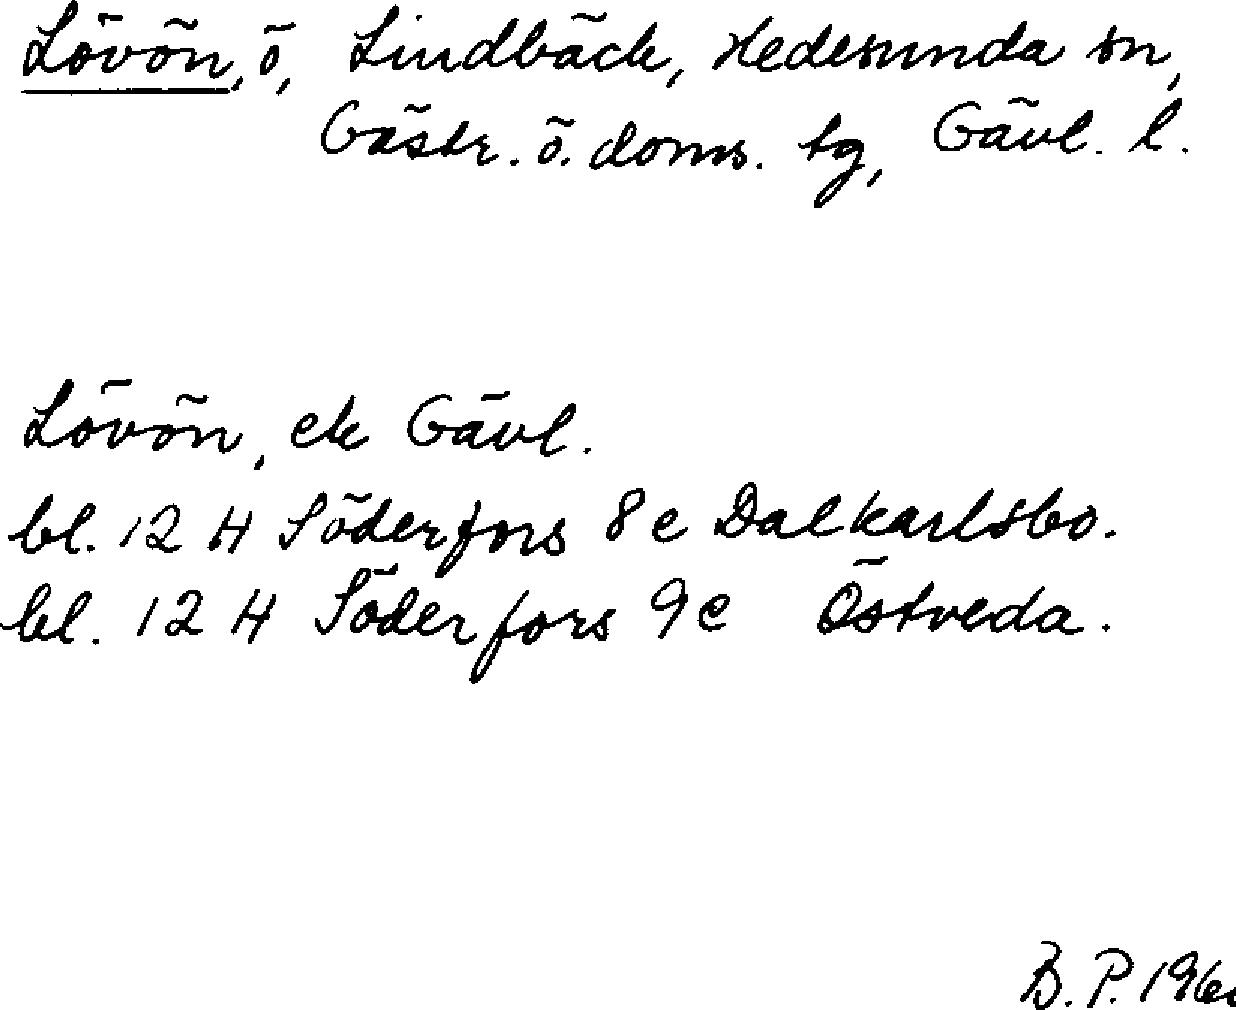 Lövön, ö, Lindbäck, Hedesunda sn,
Gästr. ö. doms. tg, Gävl. l.
Lövön, ek Gävl.
bl. 12 H Söderfors 8 e Dalkarlsbo.
bl. 12 H Söderfors 9 e Östveda.
B. P.